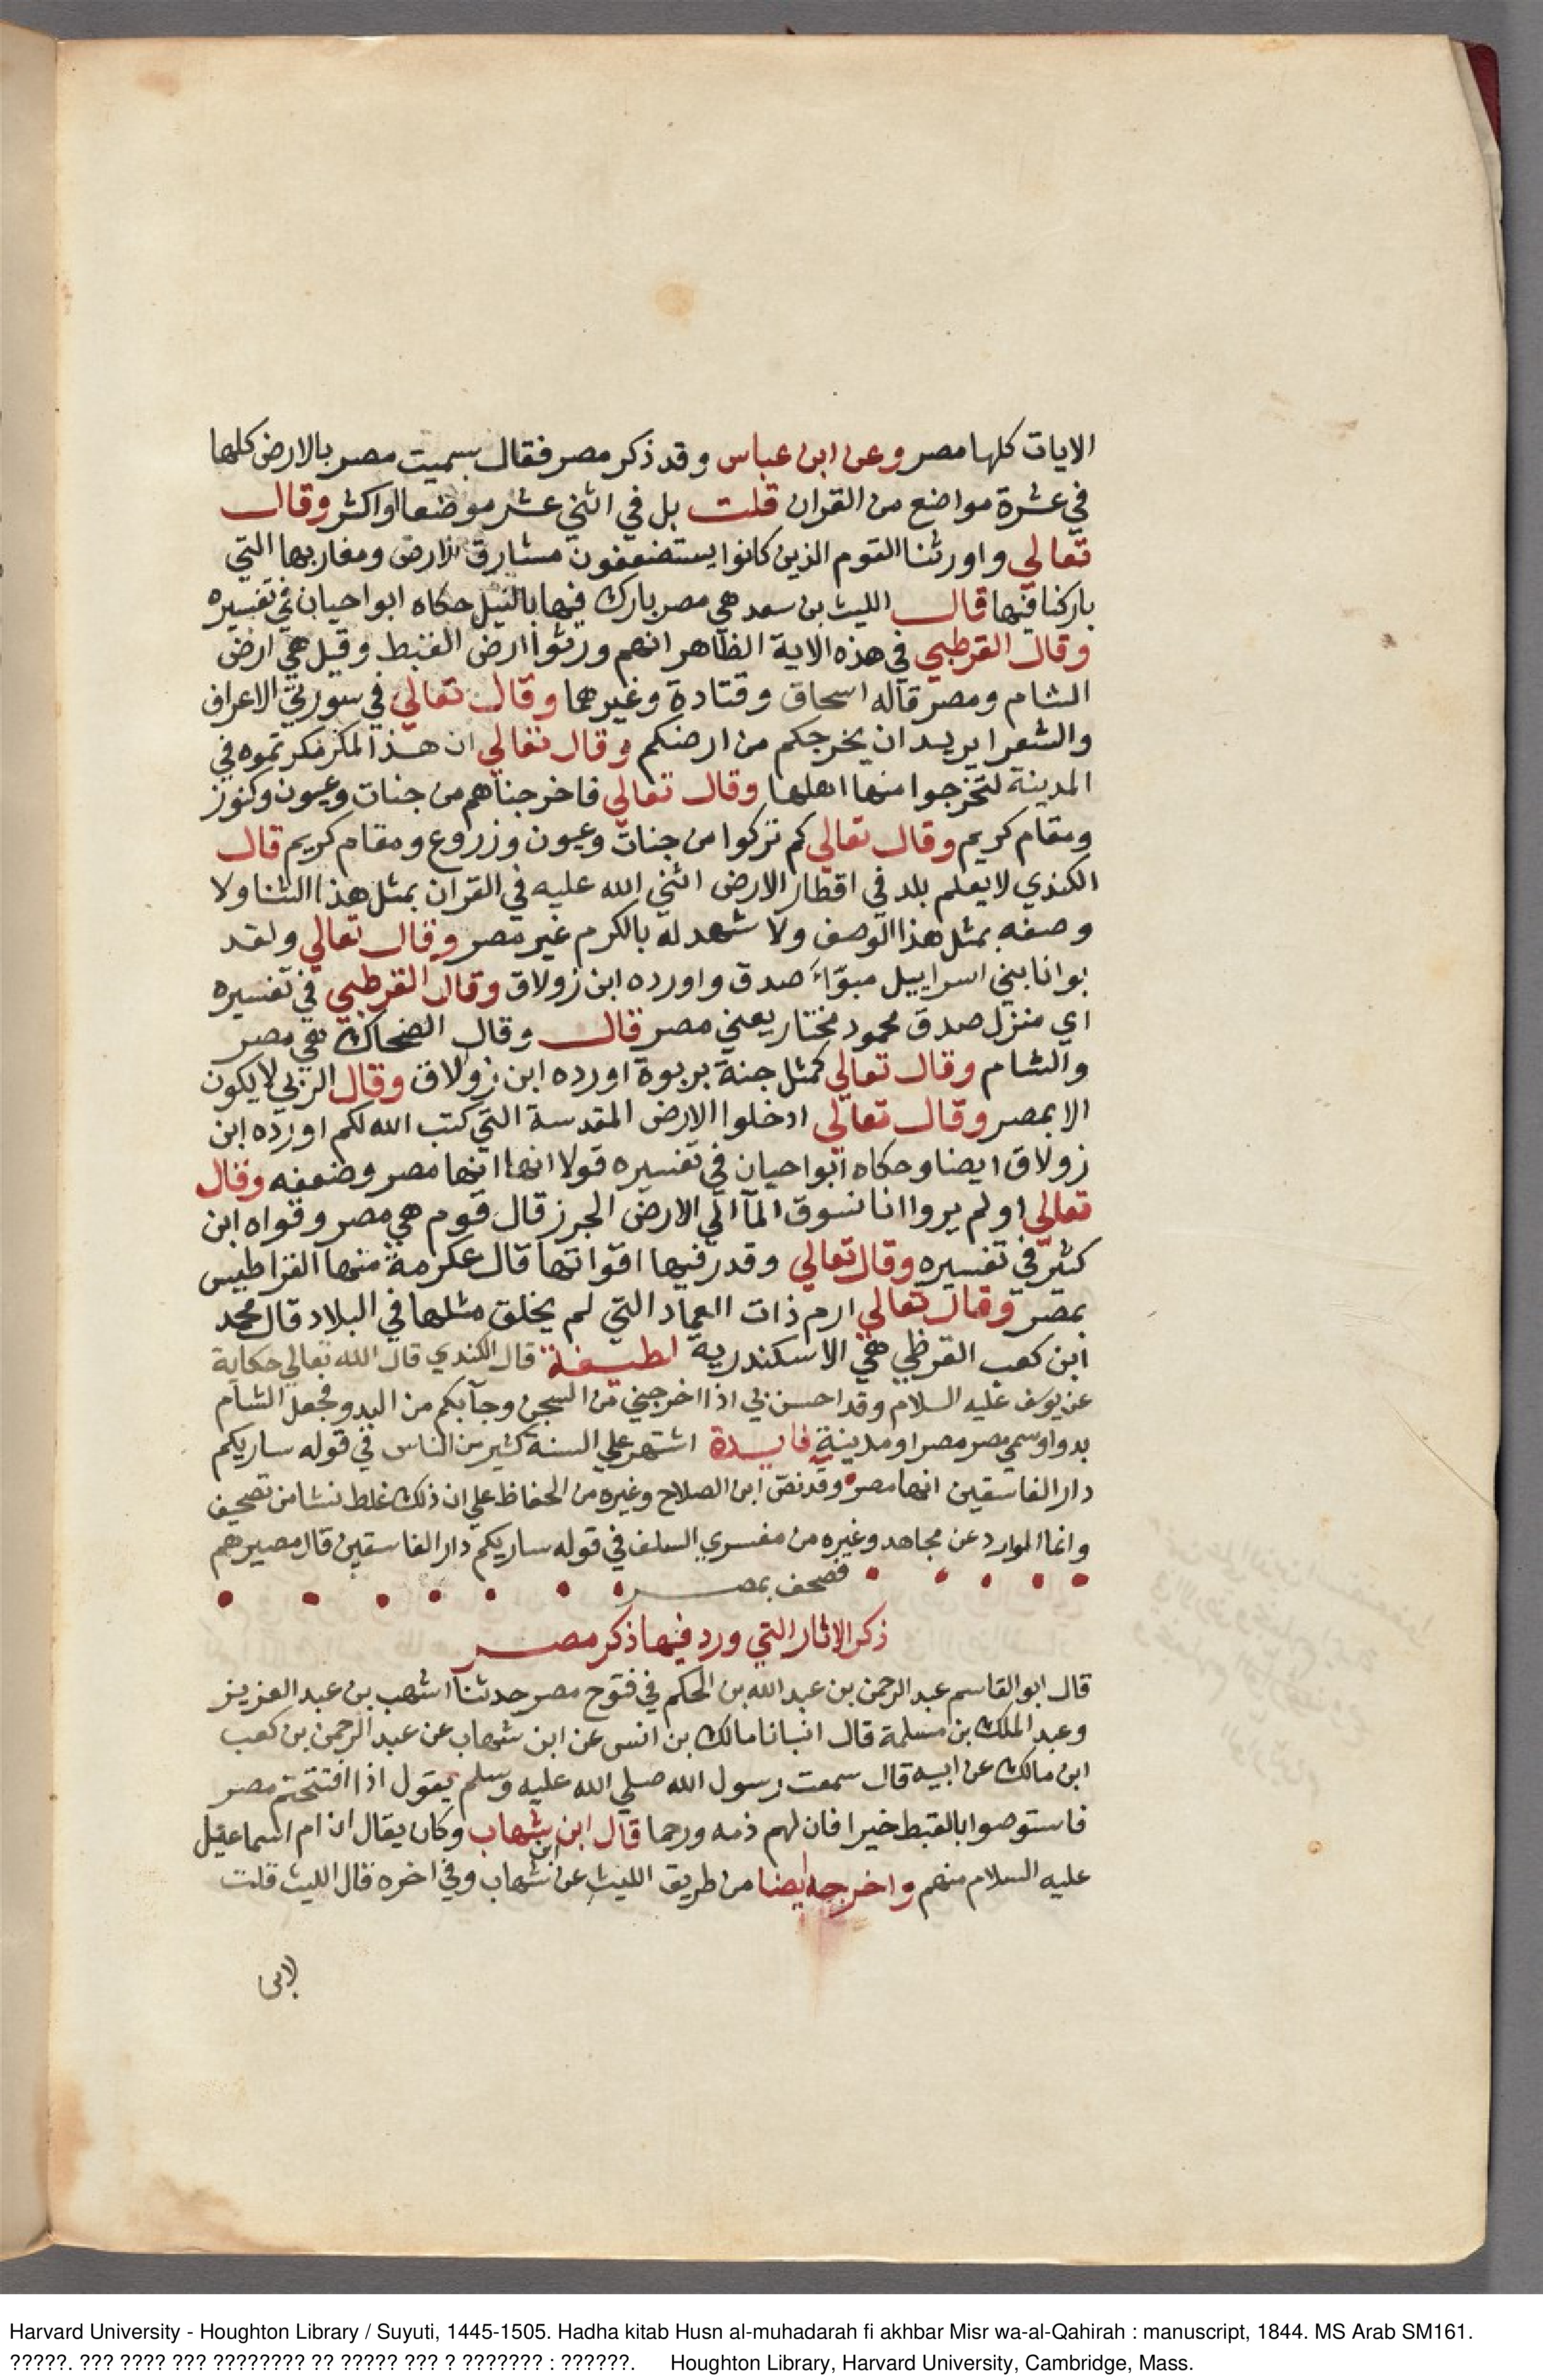 الايات كلها مصر وعن ابن عباس وقد ذكر مصر فقال سميت مصر بالارض كلها
في عشرة مواضع من القران قلت بل في اثني عشر موضعا او اكثر وقال
تعالي واورثنا القوم الذين كانوا يستضعفون مشارق الارض ومغاربها التي
باركنا فيها قال الليث بن سعد هي مصر بارك فيها بالنيل حكاه ابو احيان في تفسيره
وقال القرطبي في هذه الاية الظاهر انهم ورثوا ارض القبط وقيل هي ارض
الشام ومصر قاله اسحاق وقتادة وغيرهما وقال تعالي في سورتي الاعراف
والشعرا يريد ان يخرجكم من ارضكم وقال تعالي ان هذا المكر مكرتموه في
المدينة لتخرجوا منها اهلها وقال تعالي فاخرجناهم من جنات وعيون وكنوز
ومقام كريم وقال تعالي كم تركوا من جنات وعيون وزروع ومقام كريم قال
الكندي لا يعلم بلد في اقطار الارض اثني الله عليه في القران بمثل هذا الثنا ولا
وصفه بمثل هذا الوصف ولا شهد له بالكرم غير مصر وقال تعالي ولقد
بوانا بني اسراييل مبوّاء صدق واورده ابن زولاق وقال القرطبي في تفسيره
اي منزل صدق محمود مختار يعني مصر قال وقال الضحاك هي مصر
والشام وقال تعالي كمثل جنة بربوة اورده ابن زولاق وقال الربي لا يكون
الا بمصر وقال تعالي ادخلوا الارض المقدسة التي كتب الله لكم اورده ابن
زولاق ايضا وحكاه ابوا حيان في تفسيره قولا انها انها مصر وضعفه وقال
تعالي اولم يروا انا نسوق المآ الي الارض الجرز قال قوم هي مصر وقواه ابن
كثير في تفسيره وقال تعالي وقدر فيها اقواتها قال عكرمة منها القراطيس
بمصر وقال تعالي ارم ذات العماد التي لم يخلق مثلها في البلاد قال محمد
ابن كعب القرظي هي الاسكندرية لطيفة قال الكندي قال الله تعالي حكاية
عن يوسف عليه السلام وقد احسن بي اذ اخرجني من السجن وجآ بكم من البدو فجعل الشام
بدوا وسمي مصر مصرا ومدينة فايدة اشتهر علي السنة كثير من الناس في قوله ساريكم
دار الفاسقين انها مصر وقد نصّ ابن الصلاح وغيره من الحفاظ علي ان ذلك غلط نشا من تصحيف
وانما الوارد عن مجاهد وغيره من مفسري السلف في قوله ساريكم دار الفاسقين قال مصيرهم
فصحف بمصر
ذكر الاثار التي ورد فيها ذكر مصر
قال ابو القاسم عبد الرحمن بن عبد الله بن الحكم في فتوح مصر حدثنا اشهب بن عبد العزيز
وعبد الملك بن مسلمة قال انبانا مالك بن انس عن ابن شهاب عن عبد الرحمن بن كعب
ابن مالك عن ابيه قال سمعت رسول الله صلي الله عليه وسلم يقول اذا افتتحتم مصر
فاستوصوا بالقبط خيرا فان لهم ذمه ورحما قال ابن شهاب وكان يقال ان ام اسماعيل
عليه السلام منهم واخرجه ايضا من طريق الليث عن ابن شهاب وفي اخره قال الليث قلت
Harvard University - Houghton Library / Suyuti, 1445-1505. Hadha kitab Husn al-muhadarah fi akhbar Misr wa-al-Qahirah : manuscript, 1844. MS Arab SM161.
?????. ??? ???? ??? ???????? ?? ????? ??? ? ??????? : ??????. Houghton Library, Harvard University, Cambridge, Mass.